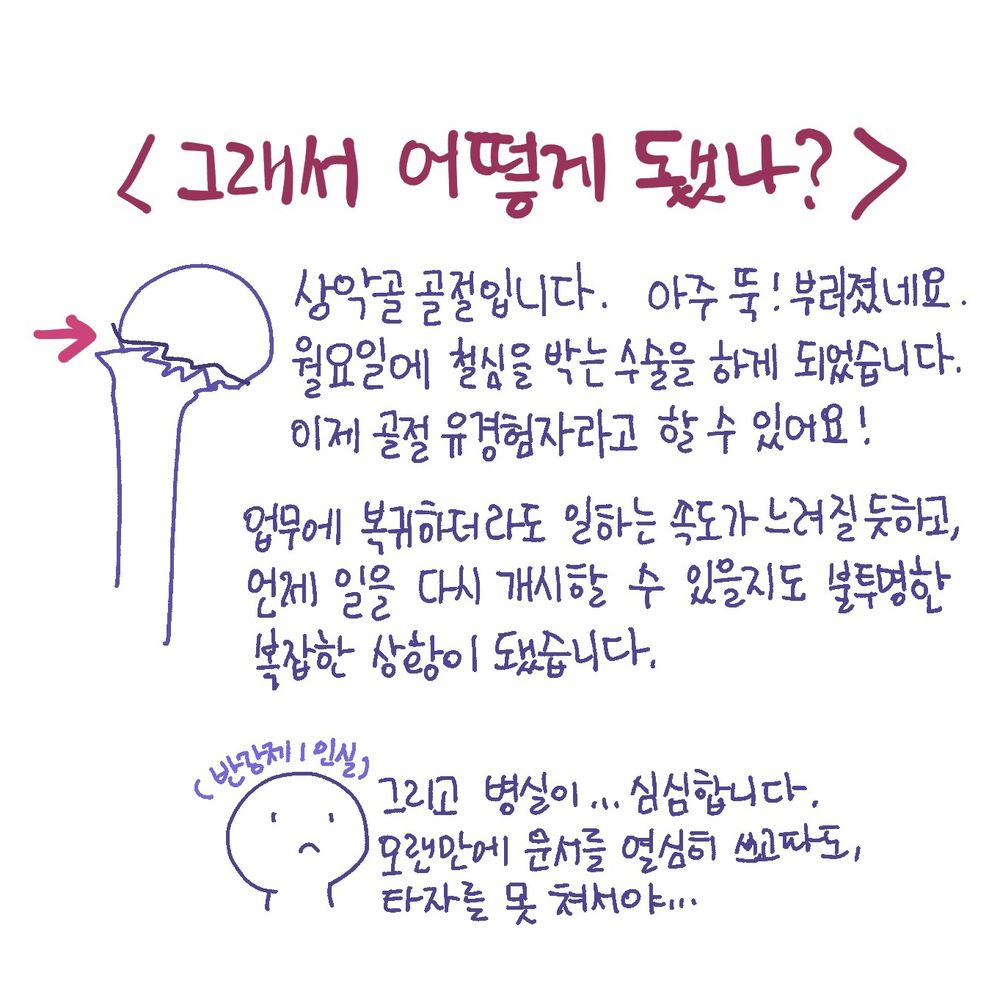 <그래서 어떻게 됐나?>
상악골 골절입니다. 아주 뚝! 부러졌네요.
월요일에 철심을 박는 수술을 하게 되었습니다.
이제 골절 유경험자라고 할 수 있어요!
업무에 복귀하더라도 일하는 속도가 느려질 듯하고,
언제 일을 다시 개시할 수 있을지도 불투명한
복잡한 상황이 됐습니다.
(반강제 1인실)
그리고 병실이... 심심합니다.
오랜만에 문서를 열심히 쓰고파도,
타자를 못 쳐서야...